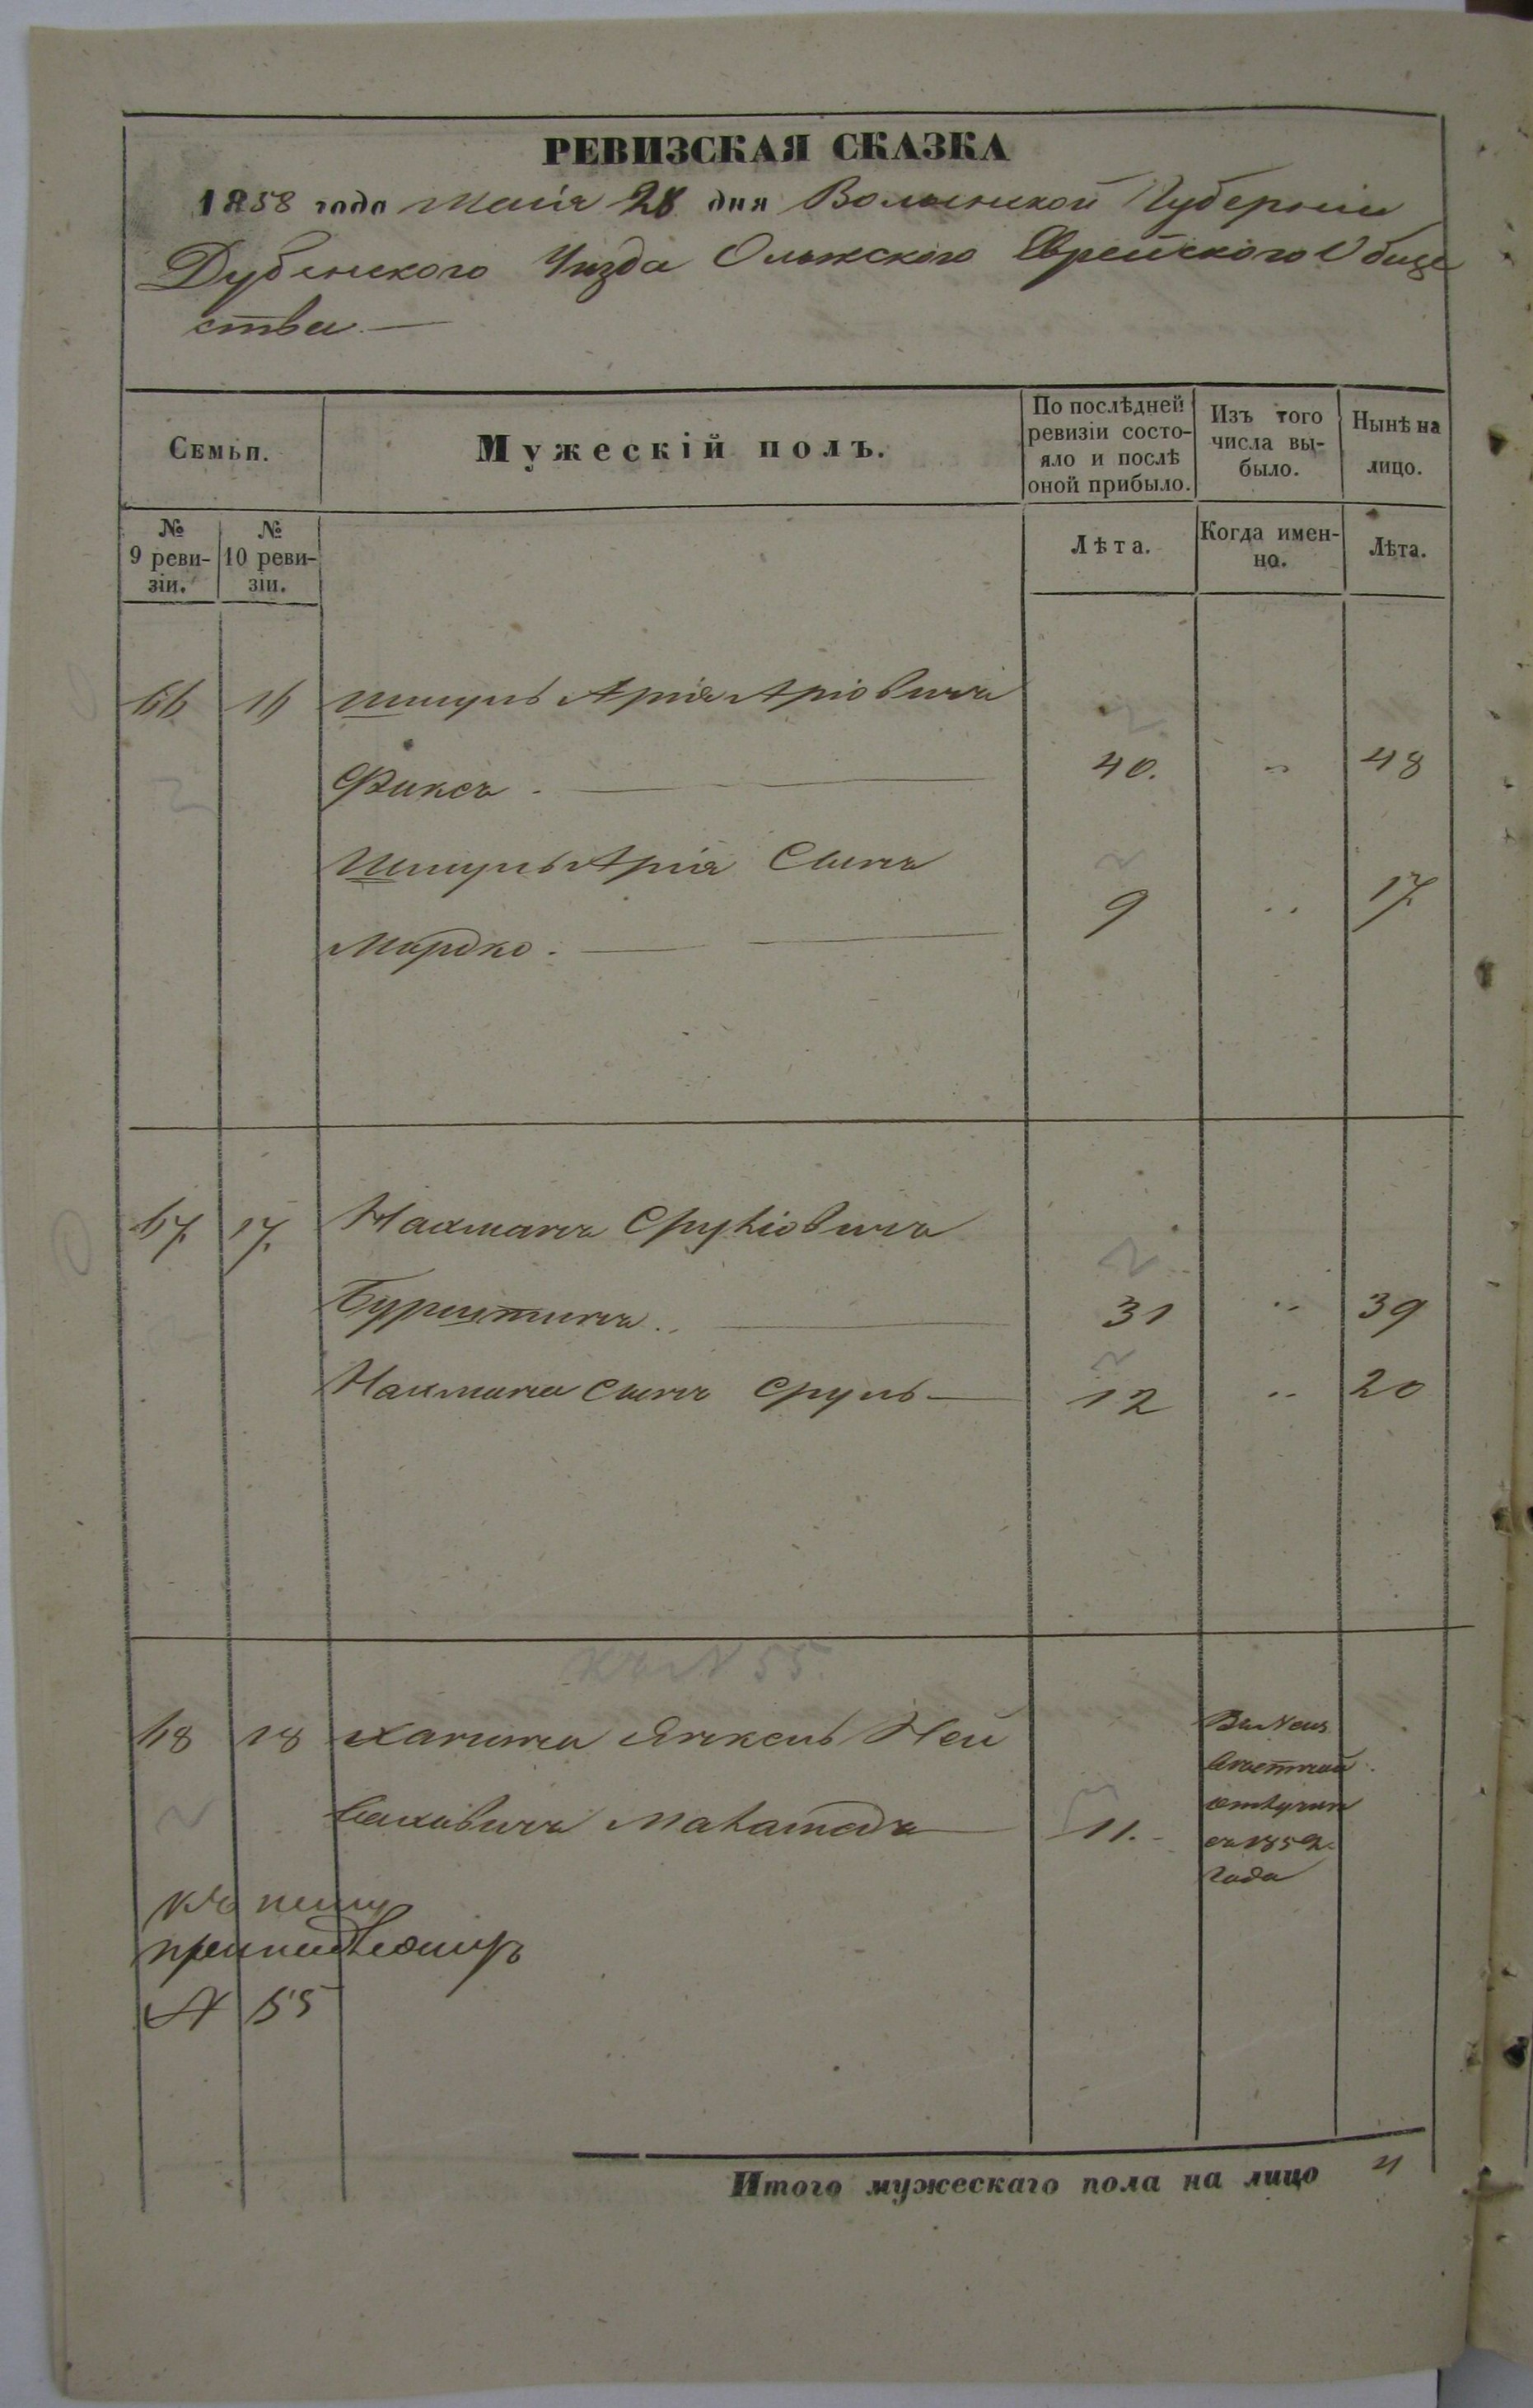 РЕВИЗСКАЯ СКАЗКА
1858 года Маія 28 дня Волынской Губерніи
Дубенского Уѣзда Олыкского Еврейского Обще
ства —
Семьи.
Мужескій полъ.
По послѣдней ревизіи состо-
яло и послѣ
оной прибыло.
Изъ того
числа вы-
было.
Нынѣ на
лицо.
№
9 реви-
зіи.
№
10 реви-
зіи.
Лѣта.
Когда имен-
но.
Лѣта.
66 16 Шмуль Арія Аріовичъ
Фиксъ. — 40. „ 48
Шмуль Арія Сынъ
Мордко. — 9 „ 17.
67. 17. Нахманъ Срулiовичъ
Бурштинъ. — 31 „ 39
Нахмана Сынъ Сруль — 12 „ 20
къ № 55.
68 18 Янкель Ней
11.
Въ Неиз
вѣстной
отлучкѣ
съ 1852
года
къ нему
№ 55
Итого мужескаго пола на лицо 4